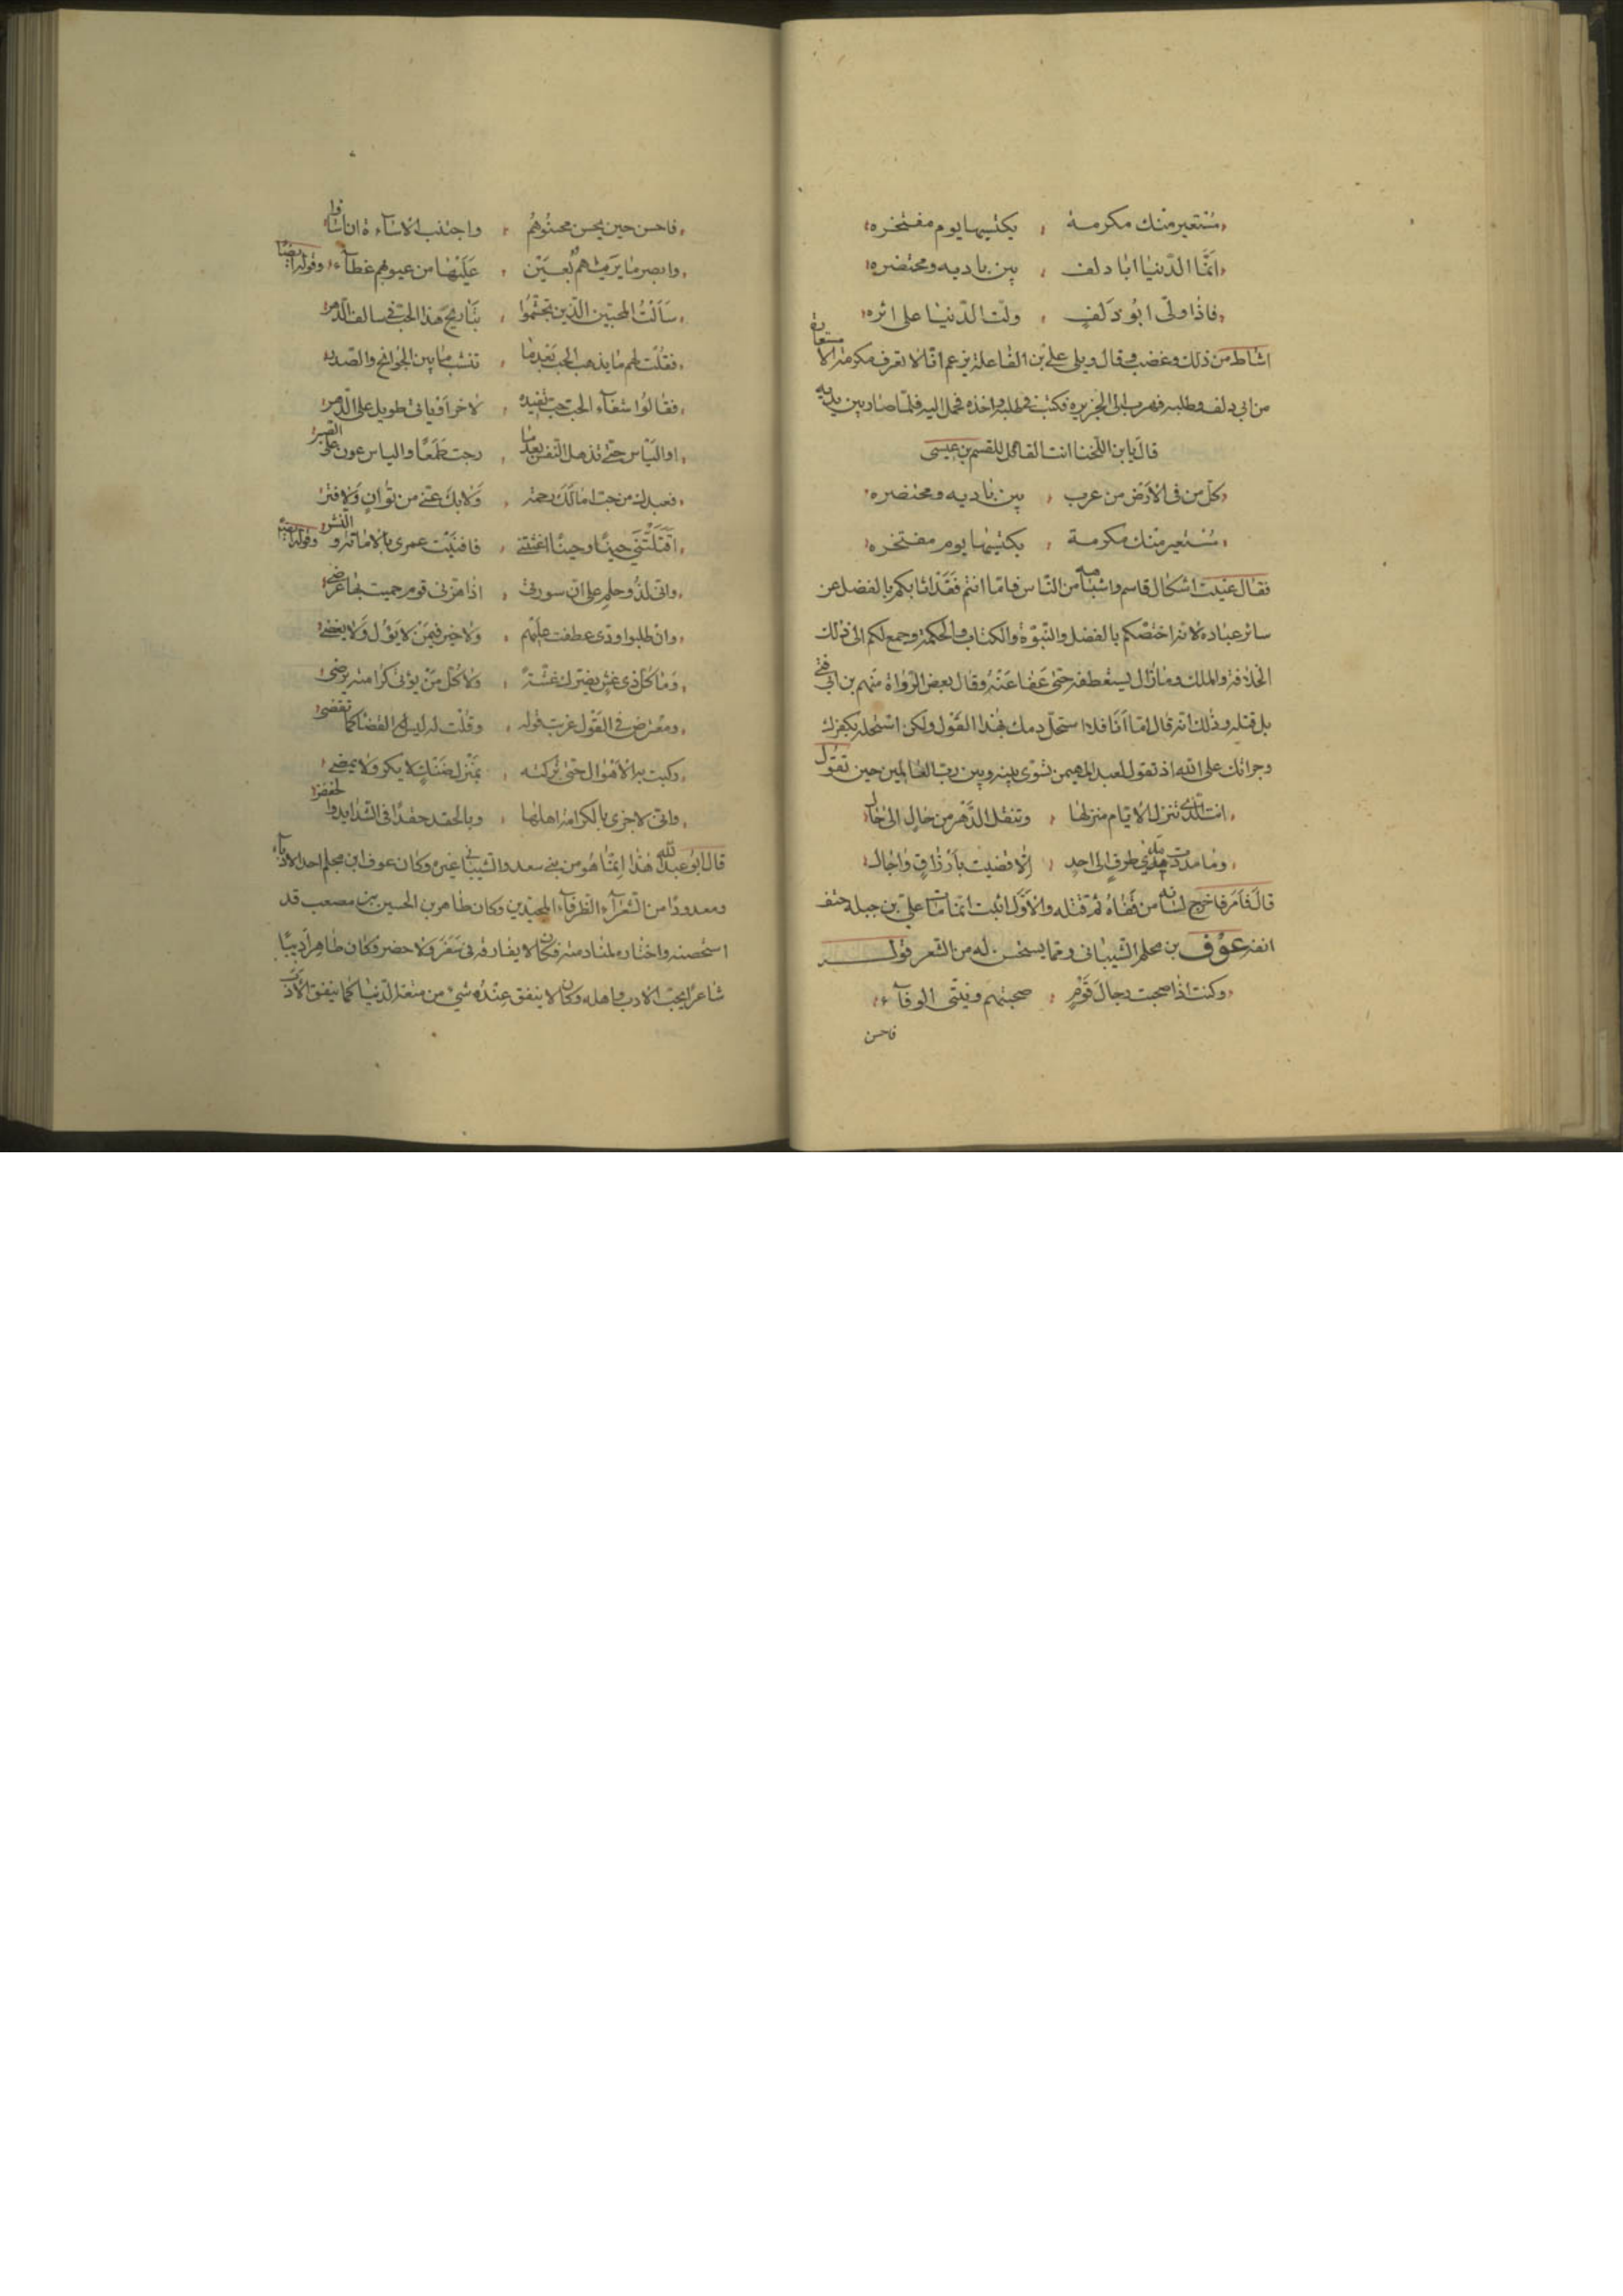 مُسْتعير منك مكرمة ، يكتسيها يوم مفتخره
انّما الدّنيا ابا دلف ، بين باديه ومحتضره
فاذا ولّى ابُو دَلَفٍ ، ولّت الدّنيا على اثره
اشاط من ذلك وغضب وقال ويلى على بن الفاعلة يزعم انّا لا نعرف مكرمة الا مستعارة
من ابي دلف وطلبه فهرب الى الجزيره فكتب فى طلبه واخذه فحمل اليه فلمّا صار بين يديه
قال يا بن اللّخنا انت القائل للقسم بن عيسى
كلّ من فى الارض من عرب ، بين باديه ومحتضره
مُسْتعير منك مكرمة ، يكتسيها يوم مفتخره
فقال عنيت اشكال قاسم واشباهه من النّاس فامّا انتم فَقَدْ ابكم بالفضل عن
سائر عباده لانّه اختصّكم بالفضل والنّبوّة والكتاب والحكمة وجمع لكم الى ذلك
الخلافة والملك وما زال يستعطفه حتى عَفا عَنْهُ وقال بعض الرّواة منهم بن ابي
بل قتله وذلك انّه قال امّا اَنَا فلا استحلّ دمك بهذا القَوْل ولكن استحله بكفرك
وجراتك على الله اذ تقول لعبد المهيمن تسوّى بينه وبين ربّ العالمين حين تقول
انت الّذى تنزل الايّام منزلها ، وتنقل الدَّهْر من حال الى حال
وما مددت مدى طرفٍ الى احدٍ ، اِلّا قضيت باَرْزاقٍ واٰجال
قال فاَمَر فاخرج لسانه من قفاهُ ثم قتله والاوّل اثبت انّما مات علىّ بن جبله حتف
انفه عوف بن محلم الشّيبانى وممّا يستحسن له من الشعر قوله
وكنت اذا صحبت رجالَ قَوْمٍ ، صحبتهم ونيّتى الوفاء
فاحسن
فاحسن حين يحسن محسنُوهُم ، واجتنب الاساءة ان اساؤا
وابصر ما يريبهم بعَيْن ، عَلَيْها من عيوبهم غطاء ، وقوله ايضًا
سَاَلْتُ المحبّين الّذين تجشّمُوا ، تباريح هذا الحبّ فى سالف الدّهر
فقلْت لهم ما يذهب الحبّ بَعْد ما ، تنشب ما بين الجوانح والصّدر
فقالُوا شفاء الحبّ حبّ يفيده ، لاخر اَوْ ناى طويل على الدّهر
او اليَاْس حتّى تذهل النّفس بعد ما ، رجت طَمَعًا والياس عون على الصبر
اَقَتَلْتَنى حينًا وحينًا اغثتنى ، فافنيت عمرى بالاماتة والنّشر ، وقوله ايضًا
وانى لذُو حلم على انّ سورتى ، اذا هزّنى قوم حميت بها عرضى
وان طلبوا ودّى عطفت عليهم ، ولا خير فيمَنْ لا يؤل ولا يغضى
وما كلّ ذى غشّ يضرّك غشّه ، ولا كُلّ مَنْ يؤتى كرامته يرضى
ومعْرض فى القَوْل عزبت قوله ، وقلْت له ليس القضا كما تقضى
ركبت به الاهْوال حتّى تركته ، بمَنْزل ضَنْكٍ لا يكر ولا يمضى
وانّى لاجزى بالكرامة اهلها ، وبالحقد حقدًا فى الشّدايد والخفض
قال ابُو عبد الله هذا اِنّما هُو من بنى سعد والشّيبانى غيره وكان عوف ابن محلم احد الادباء
ومعدودًا من الشّعَراء الظّرفاء المجيدين وكان طاهر بن الحسين بن مصعب قد
استخصنه واختاره لمنادمته فكان لا يفارقه فى سَفَرَ ولا حضر وكان طاهر اَديبًا
شاعرًا يحبّ الادب واهله وكان لا ينفق عنْدهُ شىء من متعة الدّنيا كما ينفق الاَدَب